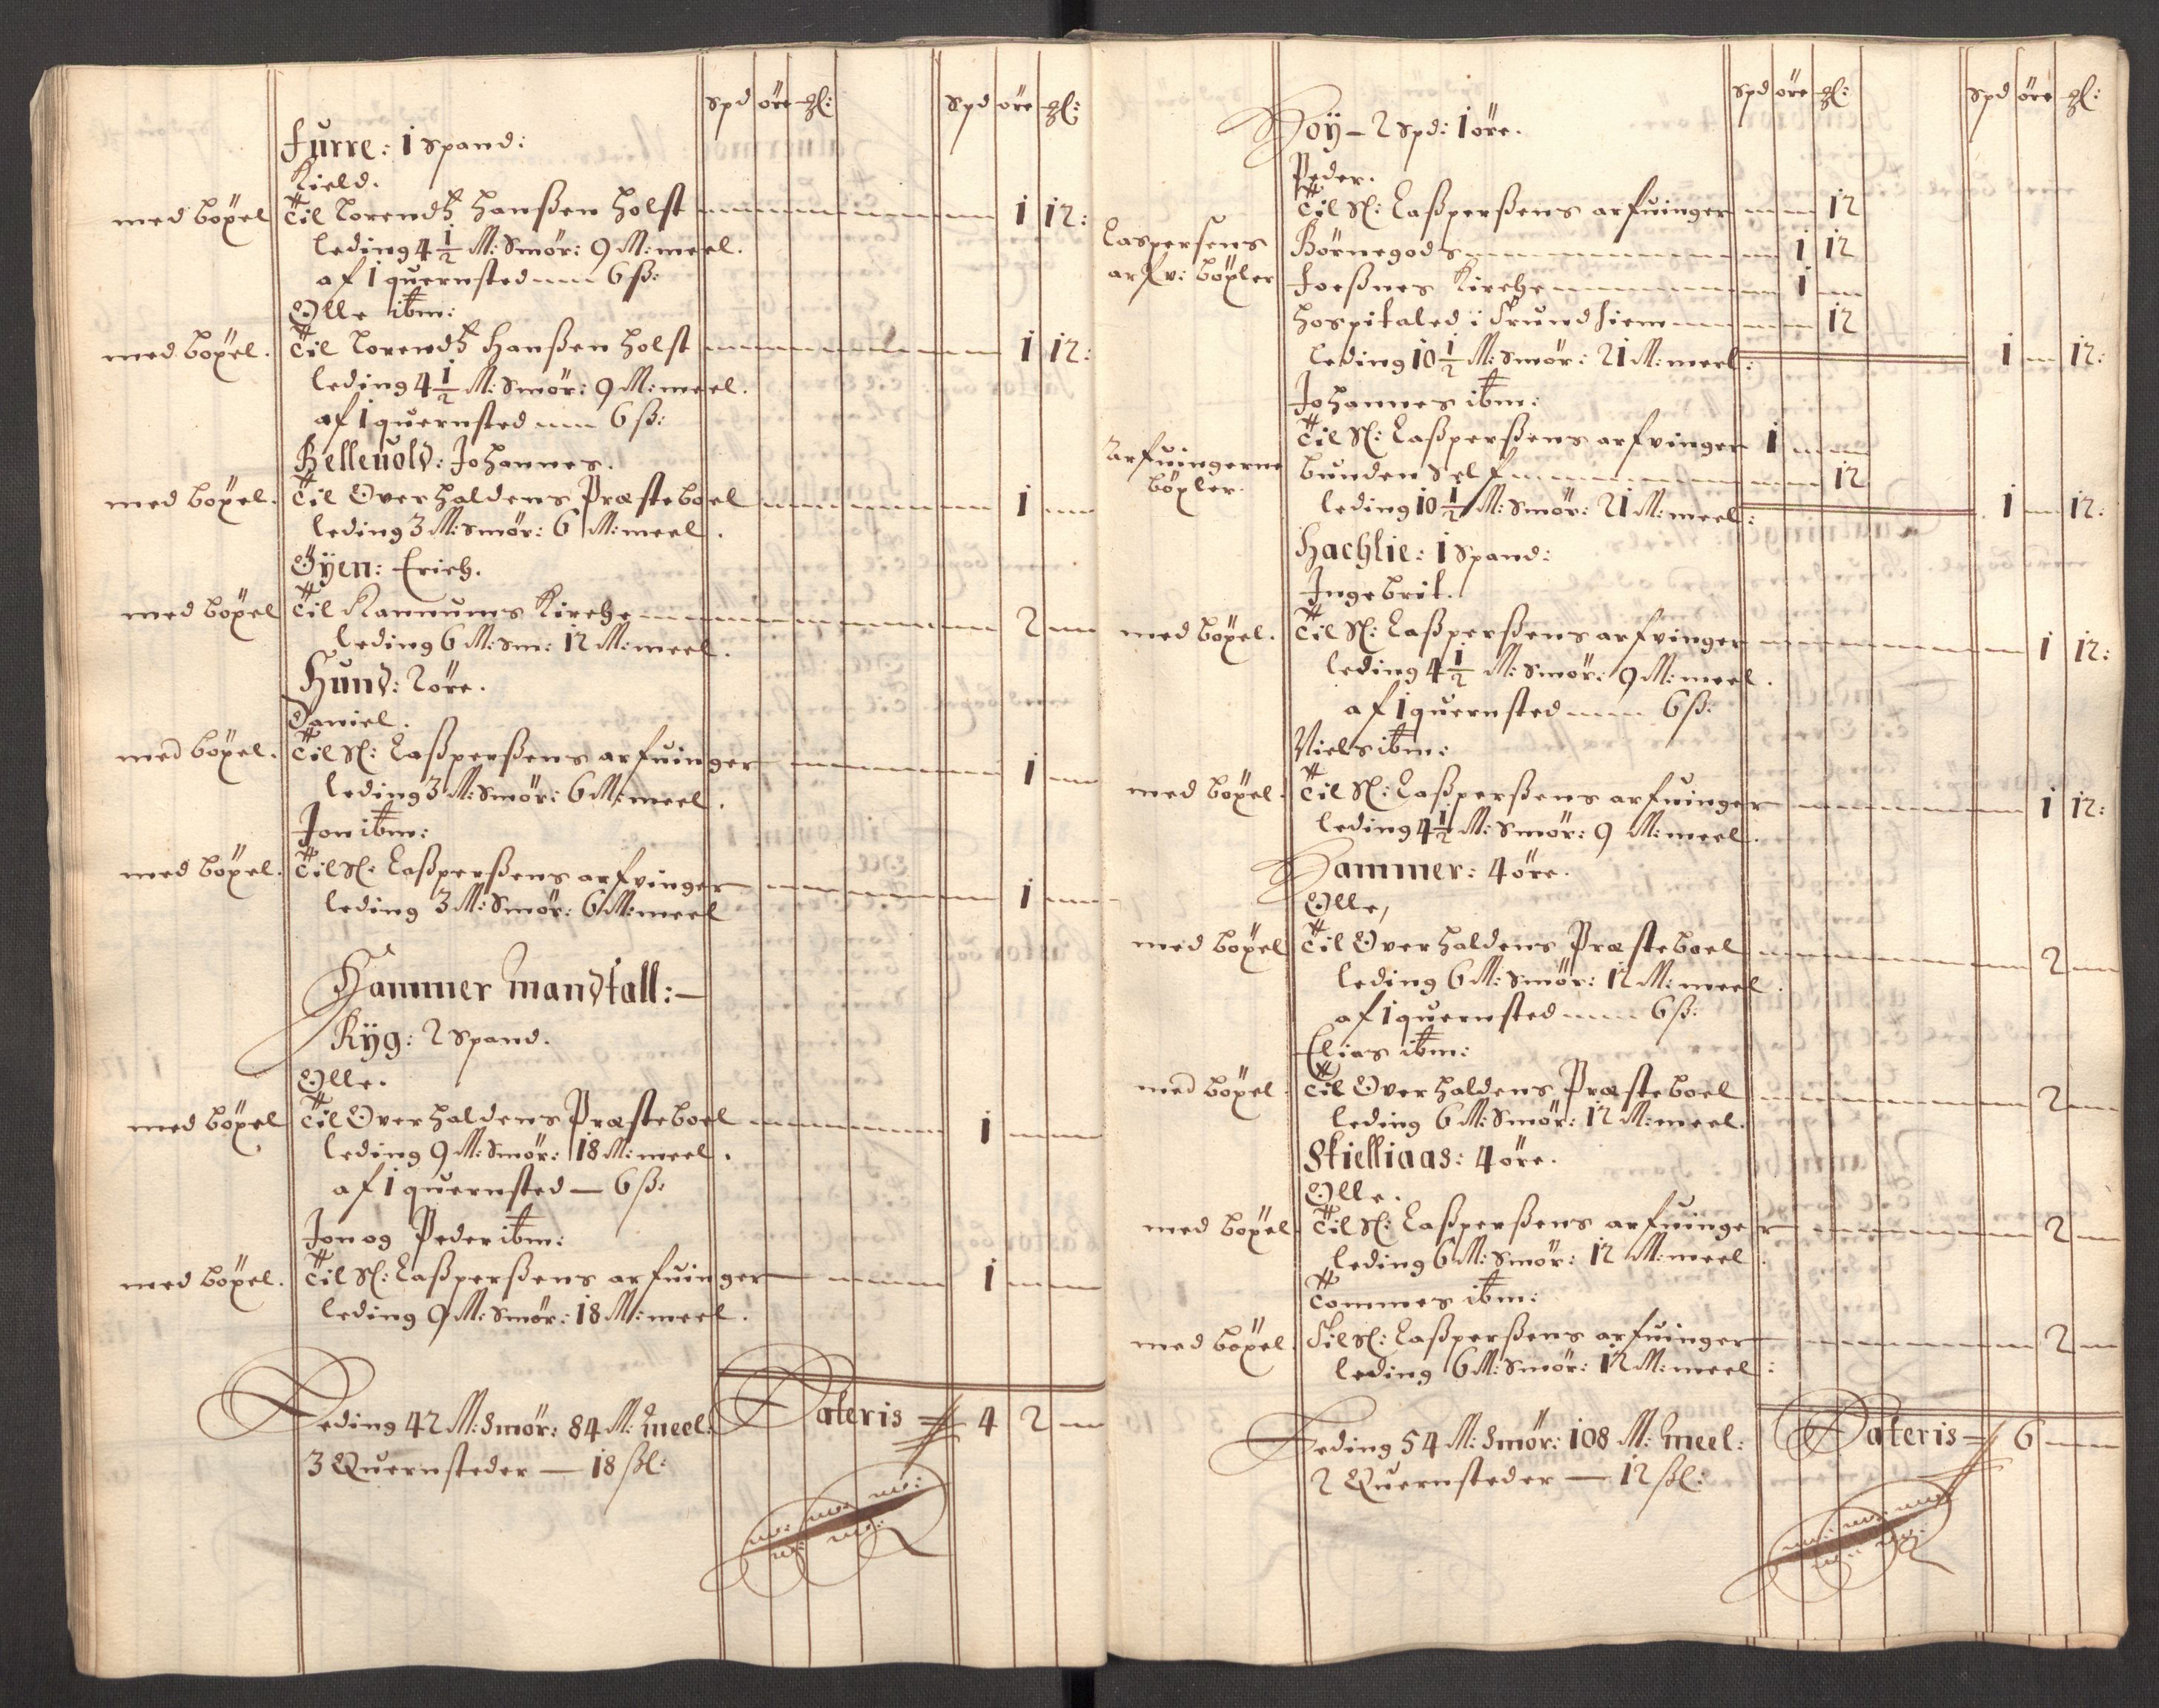 spd öre gl: spd öre gl:
Furre: 1 Spand:
Kield.
med böxel Til Lorendtz Hanßen Holst 1 12:
leding 4 1/2 M: Smör: 9 M: meel.
af 1 quernsted 6 ß:
Olle ibm:
med böxel. Til Lorendtz Hanßen Holst 1 12:
leding 4 1/2 M: Smör: 9 M: meel.
af 1 quernsted 6 ß:
Bellevold: Johannes.
med böxel. Til Overhaldens Præsteboel 1
leding 3 M: Smör: 6 M: meel.
Öyen: Erich.
med böxel Til Rannums Kirche 2
leding 6 M: Sm: 12 M: meel.
Hund: 2 öre.
Daniel.
med böxel. Til Sl: Caßperßens arfuinger 1
leding 3 M: Smör: 6 M: meel.
Jon ibm:
med böxel. Til Sl: Caßperßens arfvinger 1
leding 3 M: Smör: 6 M: meel
Hammer Mandtall:
Ryg: 2 Spand.
Olle.
med böxel Til Overhaldens Præsteboel 1
leding 9 M: Smör: 18 M: meel.
af 1 quernsted 6 ß:
Jon og Peder ibm:
med böxel. Til Sl: Caßperßens arfuinger 1
leding 9 M: Smör: 18 M: meel.
Leding 42 M: Smör: 84 M: Meel: Lateris 4 2
3 Quernsteder 18 ßl:
spd öre gl: spd öre gl:
Höÿ 2 Spd: 1 öre.
Peder.
Til Sl: Caßperßens arfuinger 12
Caspersens Börnegods 1 12
arfv: böxler Foeßnes Kirche 1
Hospitaled i Trundhiem 12
leding 10 1/2 M: Smör: 21 M: meel: 1 12:
Johannes ibm:
Til Sl: Caßperßens arfvinger 1
Arfuingerne bunden Self 12
böxler.
leding 10 1/2 M: Smör: 21 M: meel: 1 12:
Hachlie: 1 Spand:
Ingebrit.
med böxel. Til Sl: Caßperßens arfvinger 1 12:
leding 4 1/2 M: Smör: 9 M: meel.
af 1 quernsted 6 ß:
Niels ibm:
med böxel. Til Sl: Caßperßens arfuinger 1 12:
leding 4 1/2 M: Smör: 9 M: meel.
Hammer: 4 öre.
Olle,
med böxel Til Overhaldens Præsteboel 2
leding 6 M: Smör: 12 M: meel.
af 1 quernsted 6 ß:
Elias ibm:
med böxel. Til Overhaldens Præsteboel 2
leding 6 M: Smör: 12 M: meel.
Skielliaas: 4 öre.
Olle.
med böxel. Til Sl: Caßperßens arfuinger 2
leding 6 M: Smör: 12 M: meel
Tommes ibm:
med böxel. Til Sl: Caßperßens arfuinger 2
leding 6 M: Smör: 12 M: meel:
Leding 54 M: Smör: 108 M: Meel: Lateris 6
2 Quernsteder 12 ßl: